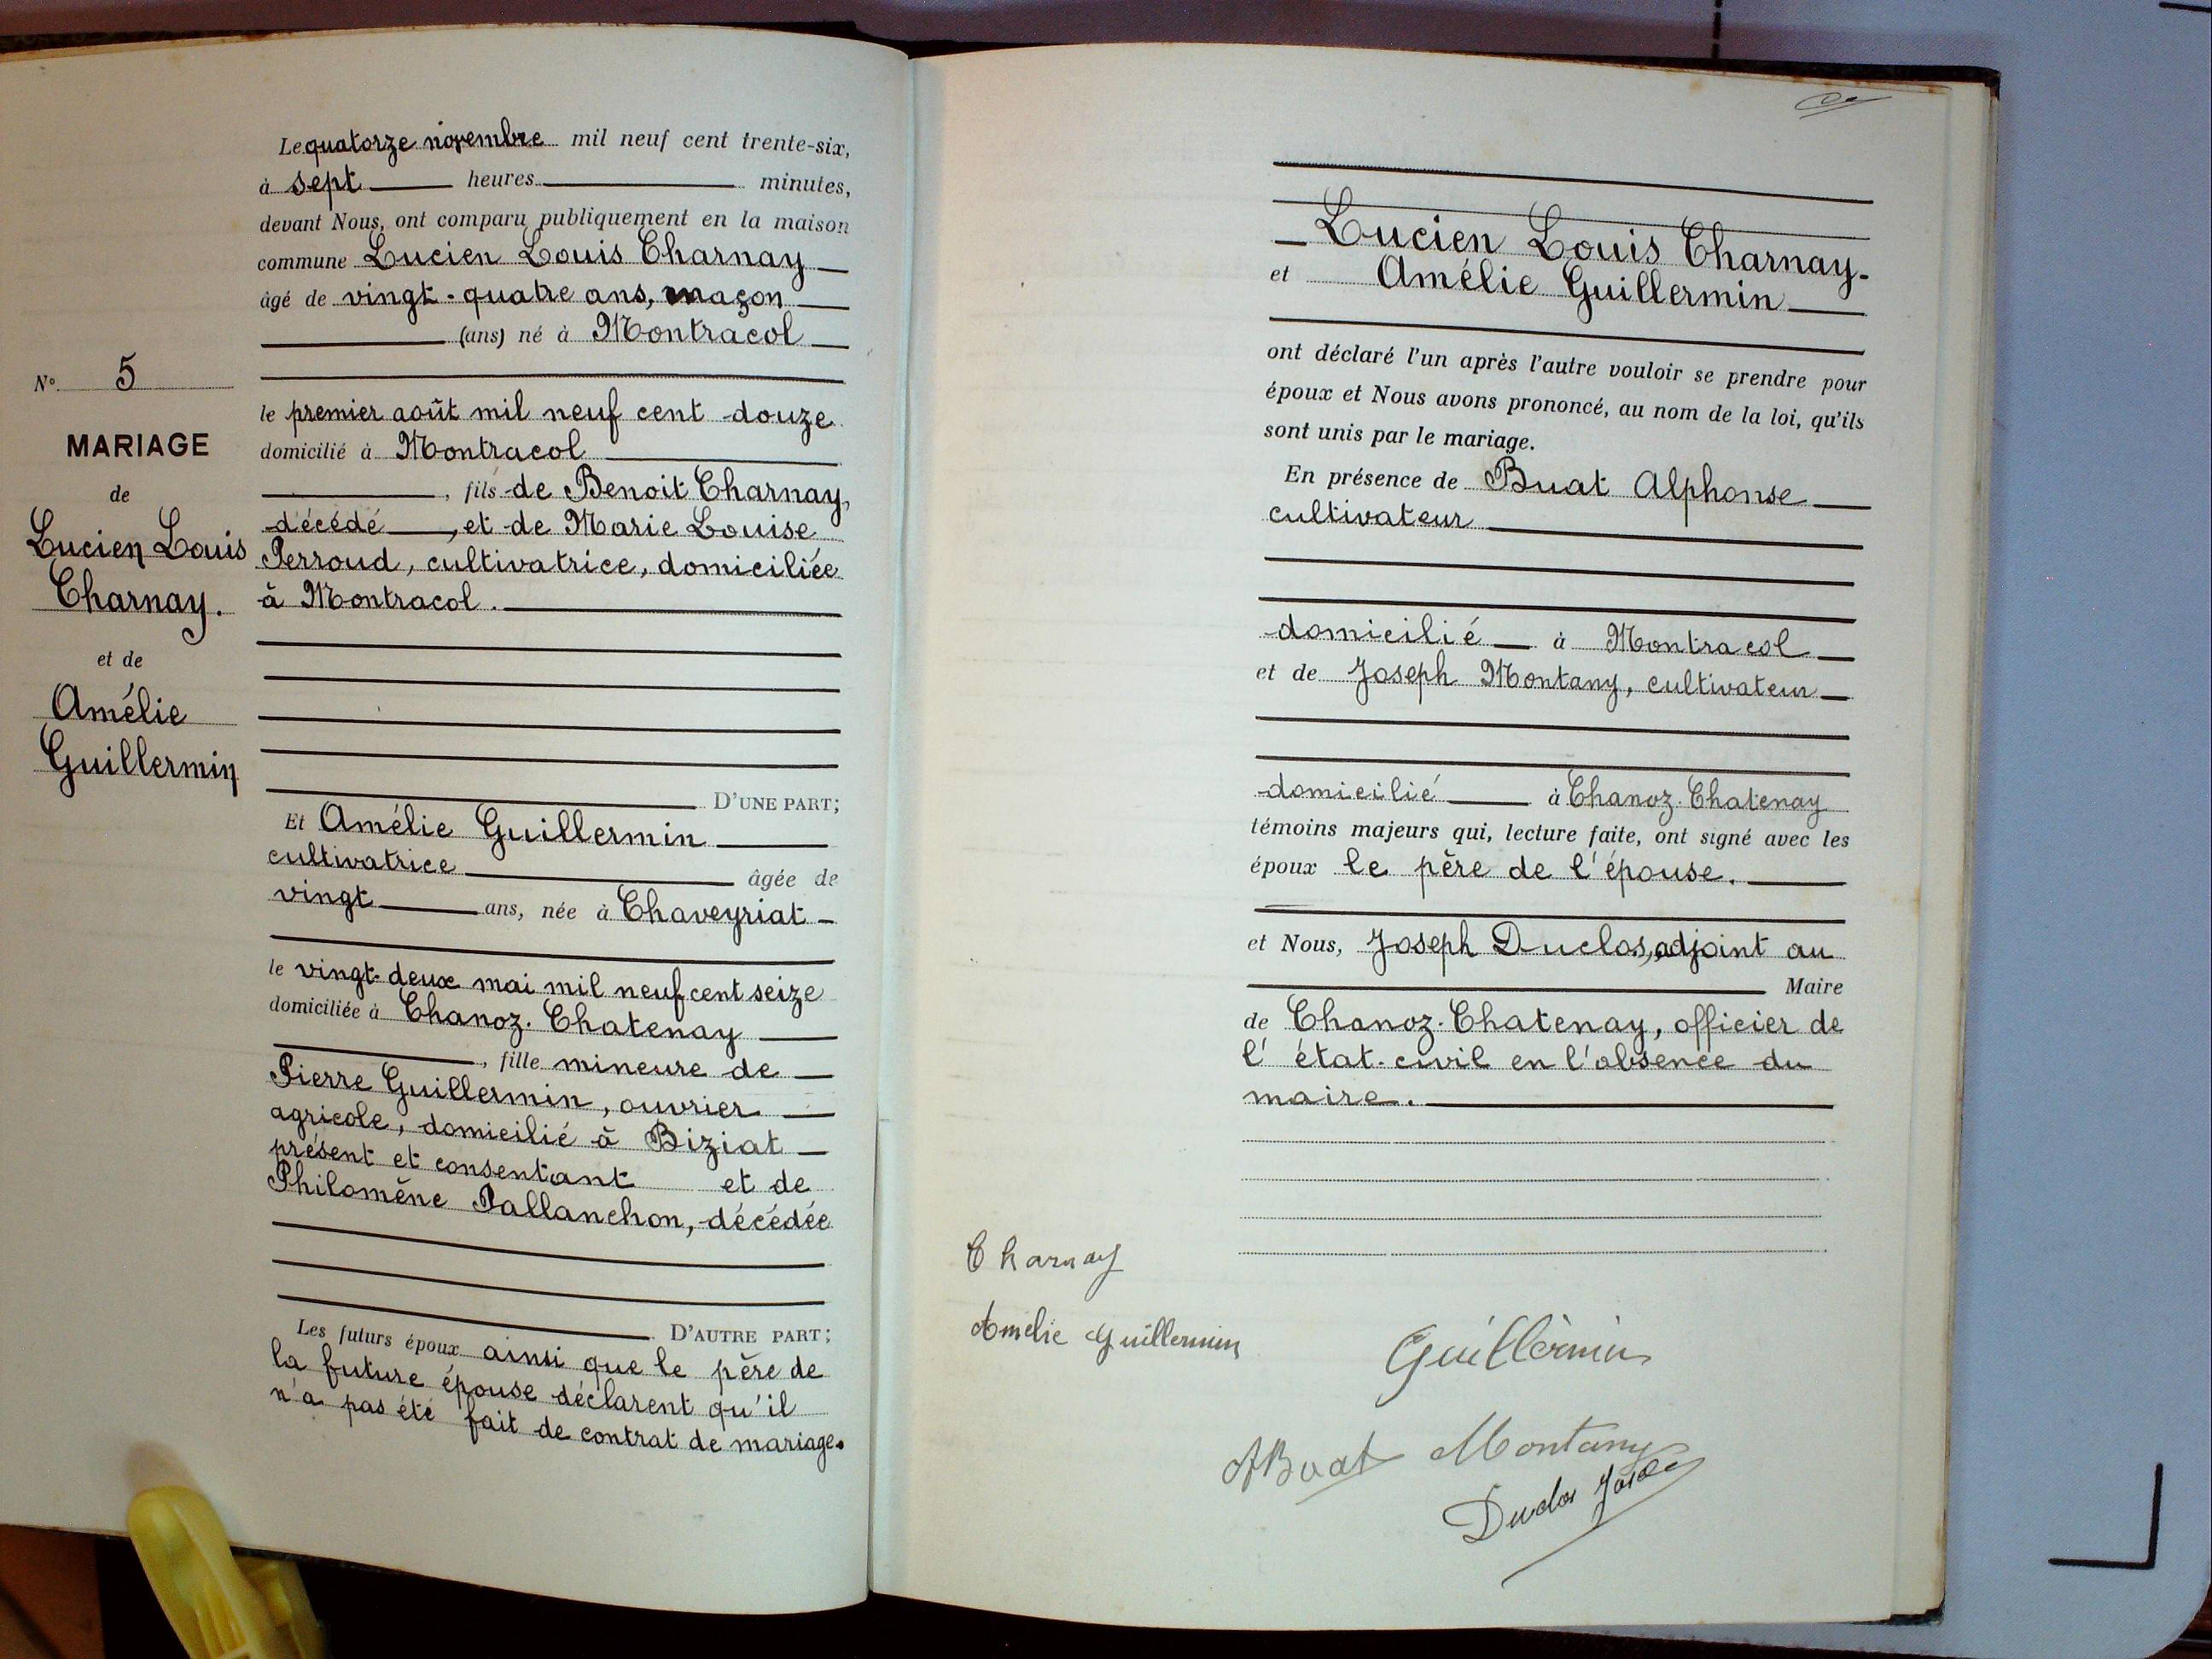 N° 5
MARIAGE
de
Lucien Louis
Charnay.
et de
Amélie
Guillermin
Le quatorze novembre mil neuf cent trente-six,
à sept heures minutes,
devant Nous, ont comparu publiquement en la maison
commune Lucien Louis Charnay
âgé de vingt-quatre ans, maçon
(ans) né à Montracol
le premier août mil neuf cent douze
domicilié à Montracol
, fils de Benoit Charnay,
décédé, et de Marie Louise
Perroud, cultivatrice, domiciliée
à Montracol.
D'UNE PART;
Et Amélie Guillermin
cultivatrice âgée de
vingt ans, née à Chaveyriat
le vingt-deux mai mil neuf cent seize
domiciliée à Chanoz-Chatenay
, fille mineure de
Pierre Guillermin, ouvrier
agricole, domicilié à Biziat
présent et consentant et de
Philomène Pallanchon, décédée
D'AUTRE PART;
Les futurs époux ainsi que le père de
la future épouse déclarent qu'il
n'a pas été fait de contrat de mariage.
Lucien Louis Charnay-
et Amélie Guillermin
ont déclaré l'un après l'autre vouloir se prendre pour
époux et Nous avons prononcé, au nom de la loi, qu'ils
sont unis par le mariage.
En présence de Buat Alphonse
cultivateur
domicilié à Montracol
et de Joseph Montany, cultivateur
domicilié à Chanoz-Chatenay
témoins majeurs qui, lecture faite, ont signé avec les
époux le père de l'épouse.
et Nous, Joseph Duclos, adjoint au
Maire
de Chanoz-Chatenay, officier de
l'état-civil en l'absence du
maire.
Charnay
Amélie Guillermin
Guillermin
ABuat Montany
Duclos Joseph